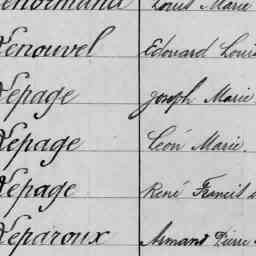 Lenormand Louis Marie
Lenouvel Edouard Louis
Lepage Joseph Marie
Lepage Léon Marie.
Lepage René Francis
Leparoux Armand Pierre